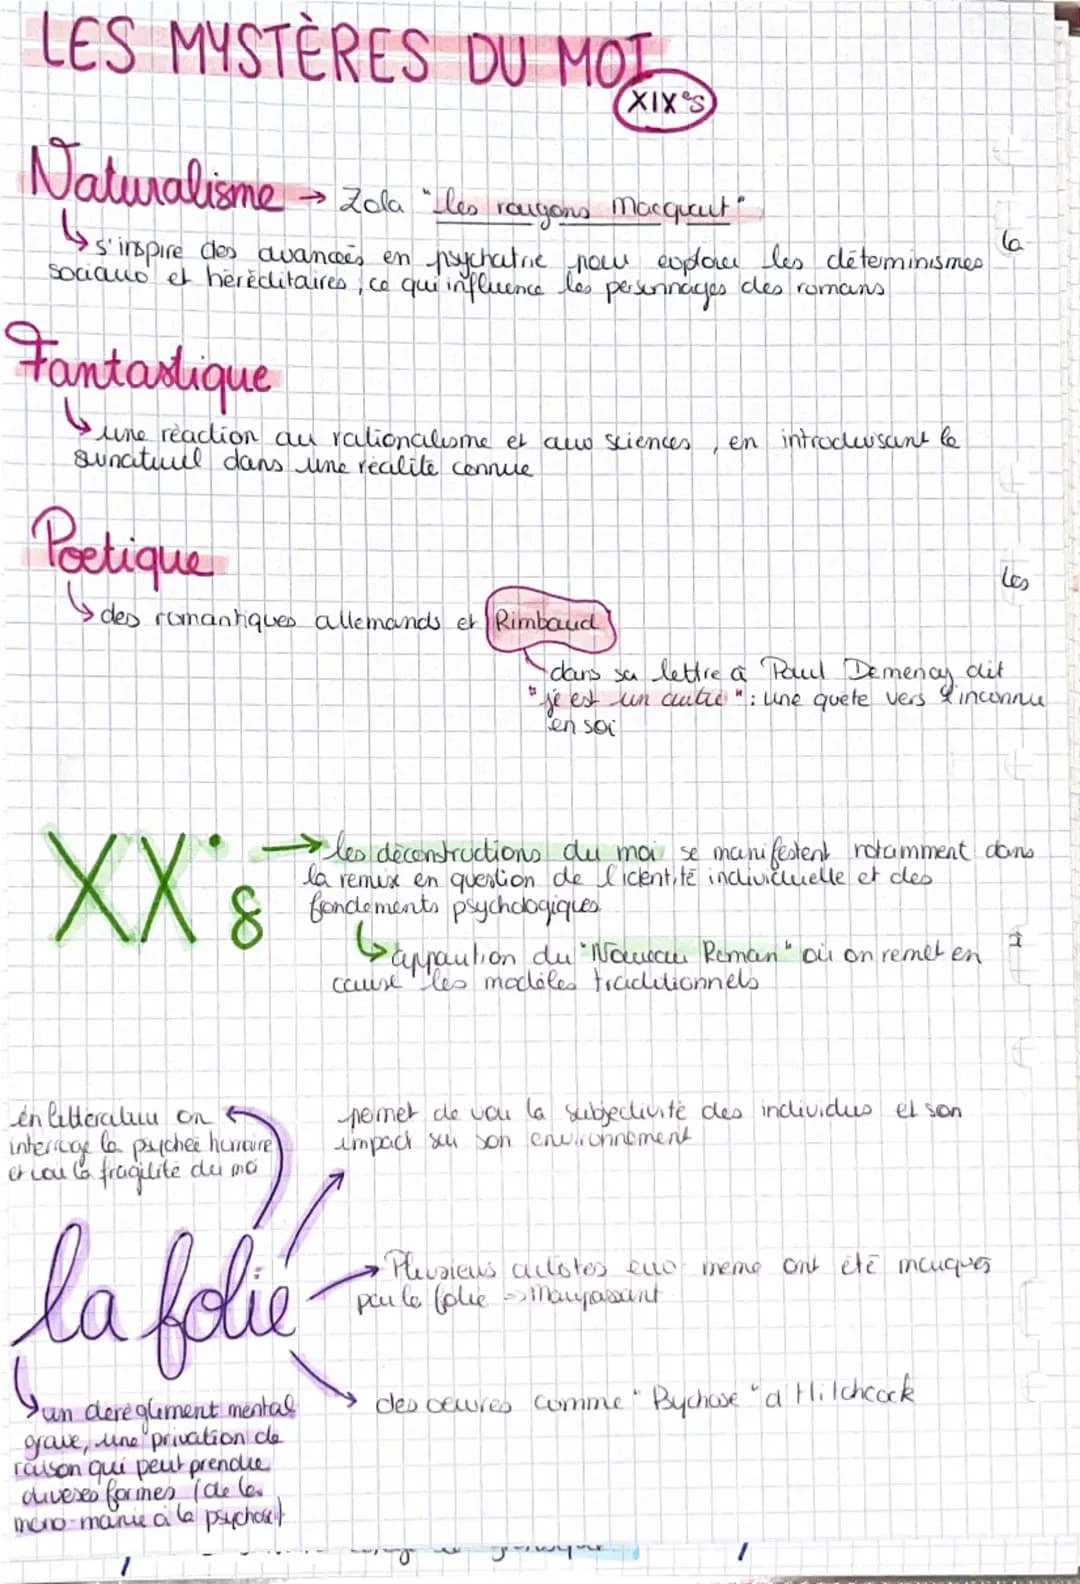 LES MYSTÈRES DU MOI
XIX°s
Naturalisme → Zola "les rougons Macquart"
↳ s'inspire des avancées en psychatrie pour explorer les déterminismes
sociaux et héréditaires, ce qui influence les personnages des romans
la
Fantastique
↳ une réaction au rationalisme et aux sciences, en introduisant le
surnaturel dans une réalité connue
Poetique
les
↳ des romantiques allemands et Rimbaud
dans sa lettre à Paul Demeny dit
"je est un autre" : une quête vers l'inconnu
en soi
XX°s → les déconstructions du moi se manifestent notamment dans
la remise en question de l'identité individuelle et des
fondements psychologiques
↳ apparition du "Nouveau Roman" où on remet en
cause les modèles traditionnels
en litterature on
interroge la psychée humaine
et voit la fragilité du moi
permet de voir la subjectivité des individus et son
impact sur son environnement
la folie
→ Plusieurs artistes eux meme ont été marqués
par la folie → Maupassant
→ des oeuvres comme "Psychose" d'Hitchcock
↳ un dérèglement mental
grave, une privation de
raison qui peut prendre
diverses formes (de la
mono-manie à la psychose)